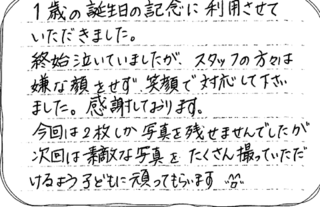 1歳の誕生日の記念に利用させて
いただきました。
終始泣いていましたが、スタッフの方々は
嫌な顔をせず 笑顔で対応して下さい
ました。感謝しております。
今回は2枚しか写真を残せませんでしたが
次回は素敵な写真をたくさん撮っていただ
けるよう子どもに頑ってもらいます